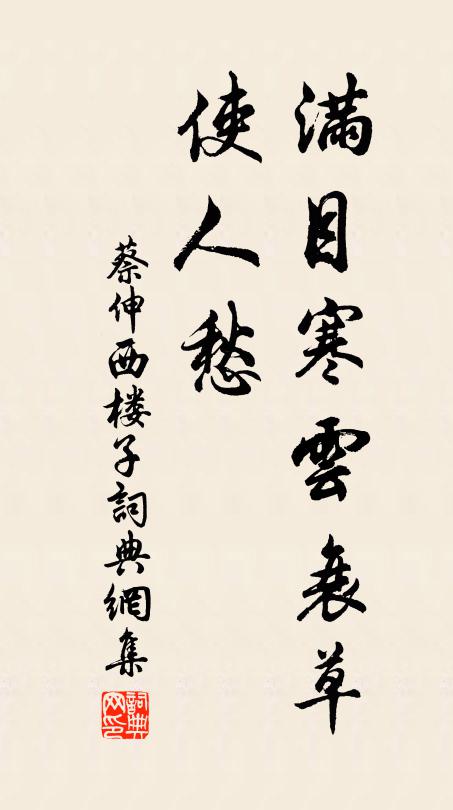 滿目寒雲衰草
使人愁
蔡伸西楼子詞典網集
詞典
网印